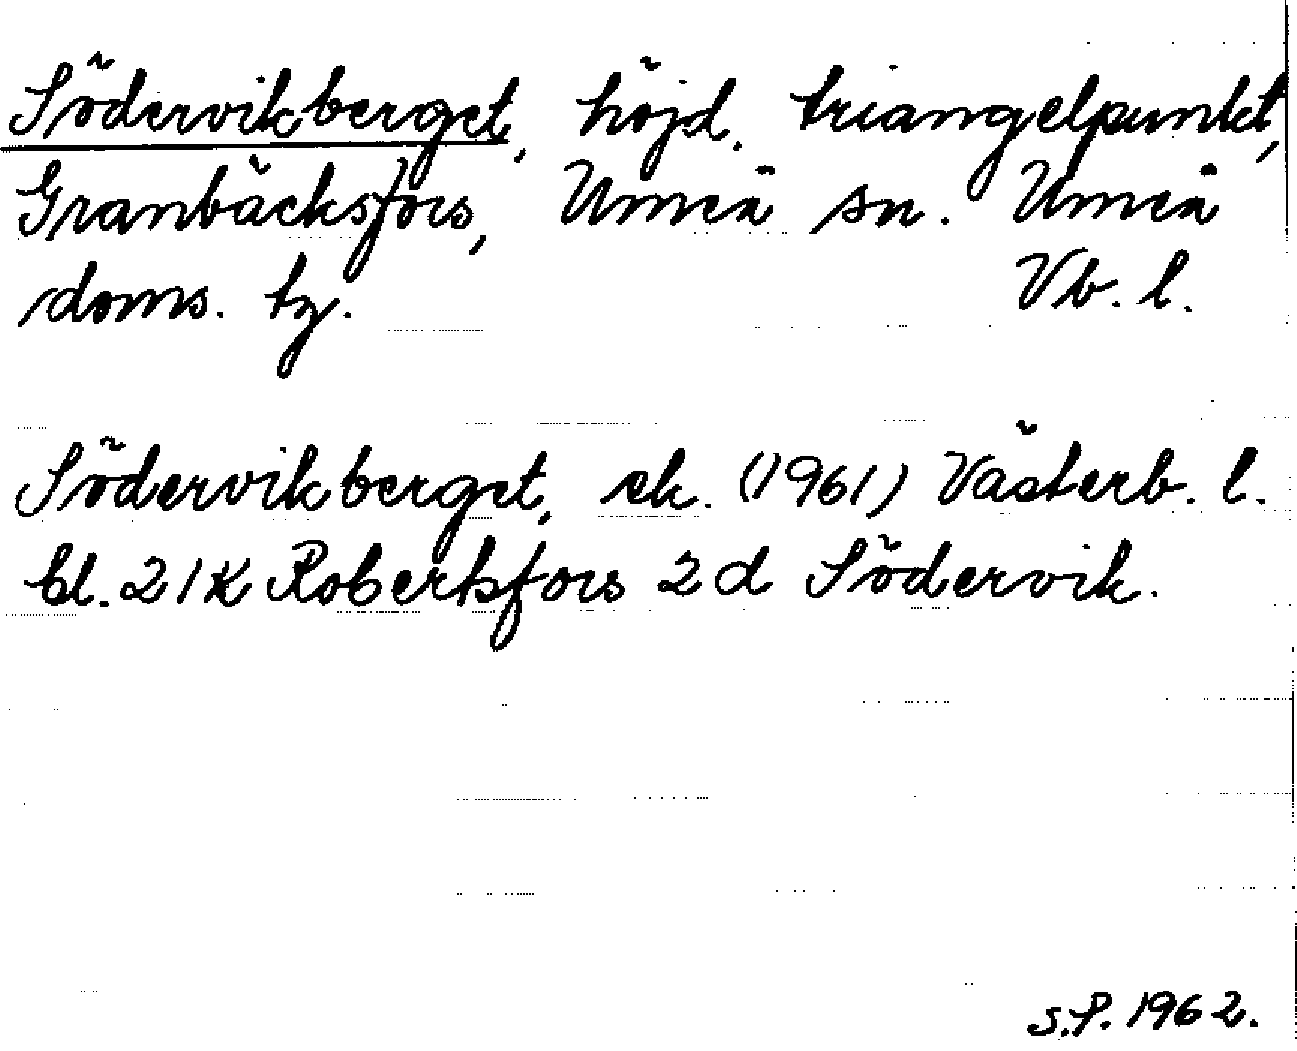 Södervikberget, höjd, triangelpunkt,
Granbäcksfors, Umeå sn. Umeå
doms. tg. Vb. l.
Södervikberget, ek. (1961) Västerb. l.
bl. 21K Robertsfors 2d Södervik.
S.P. 1962.